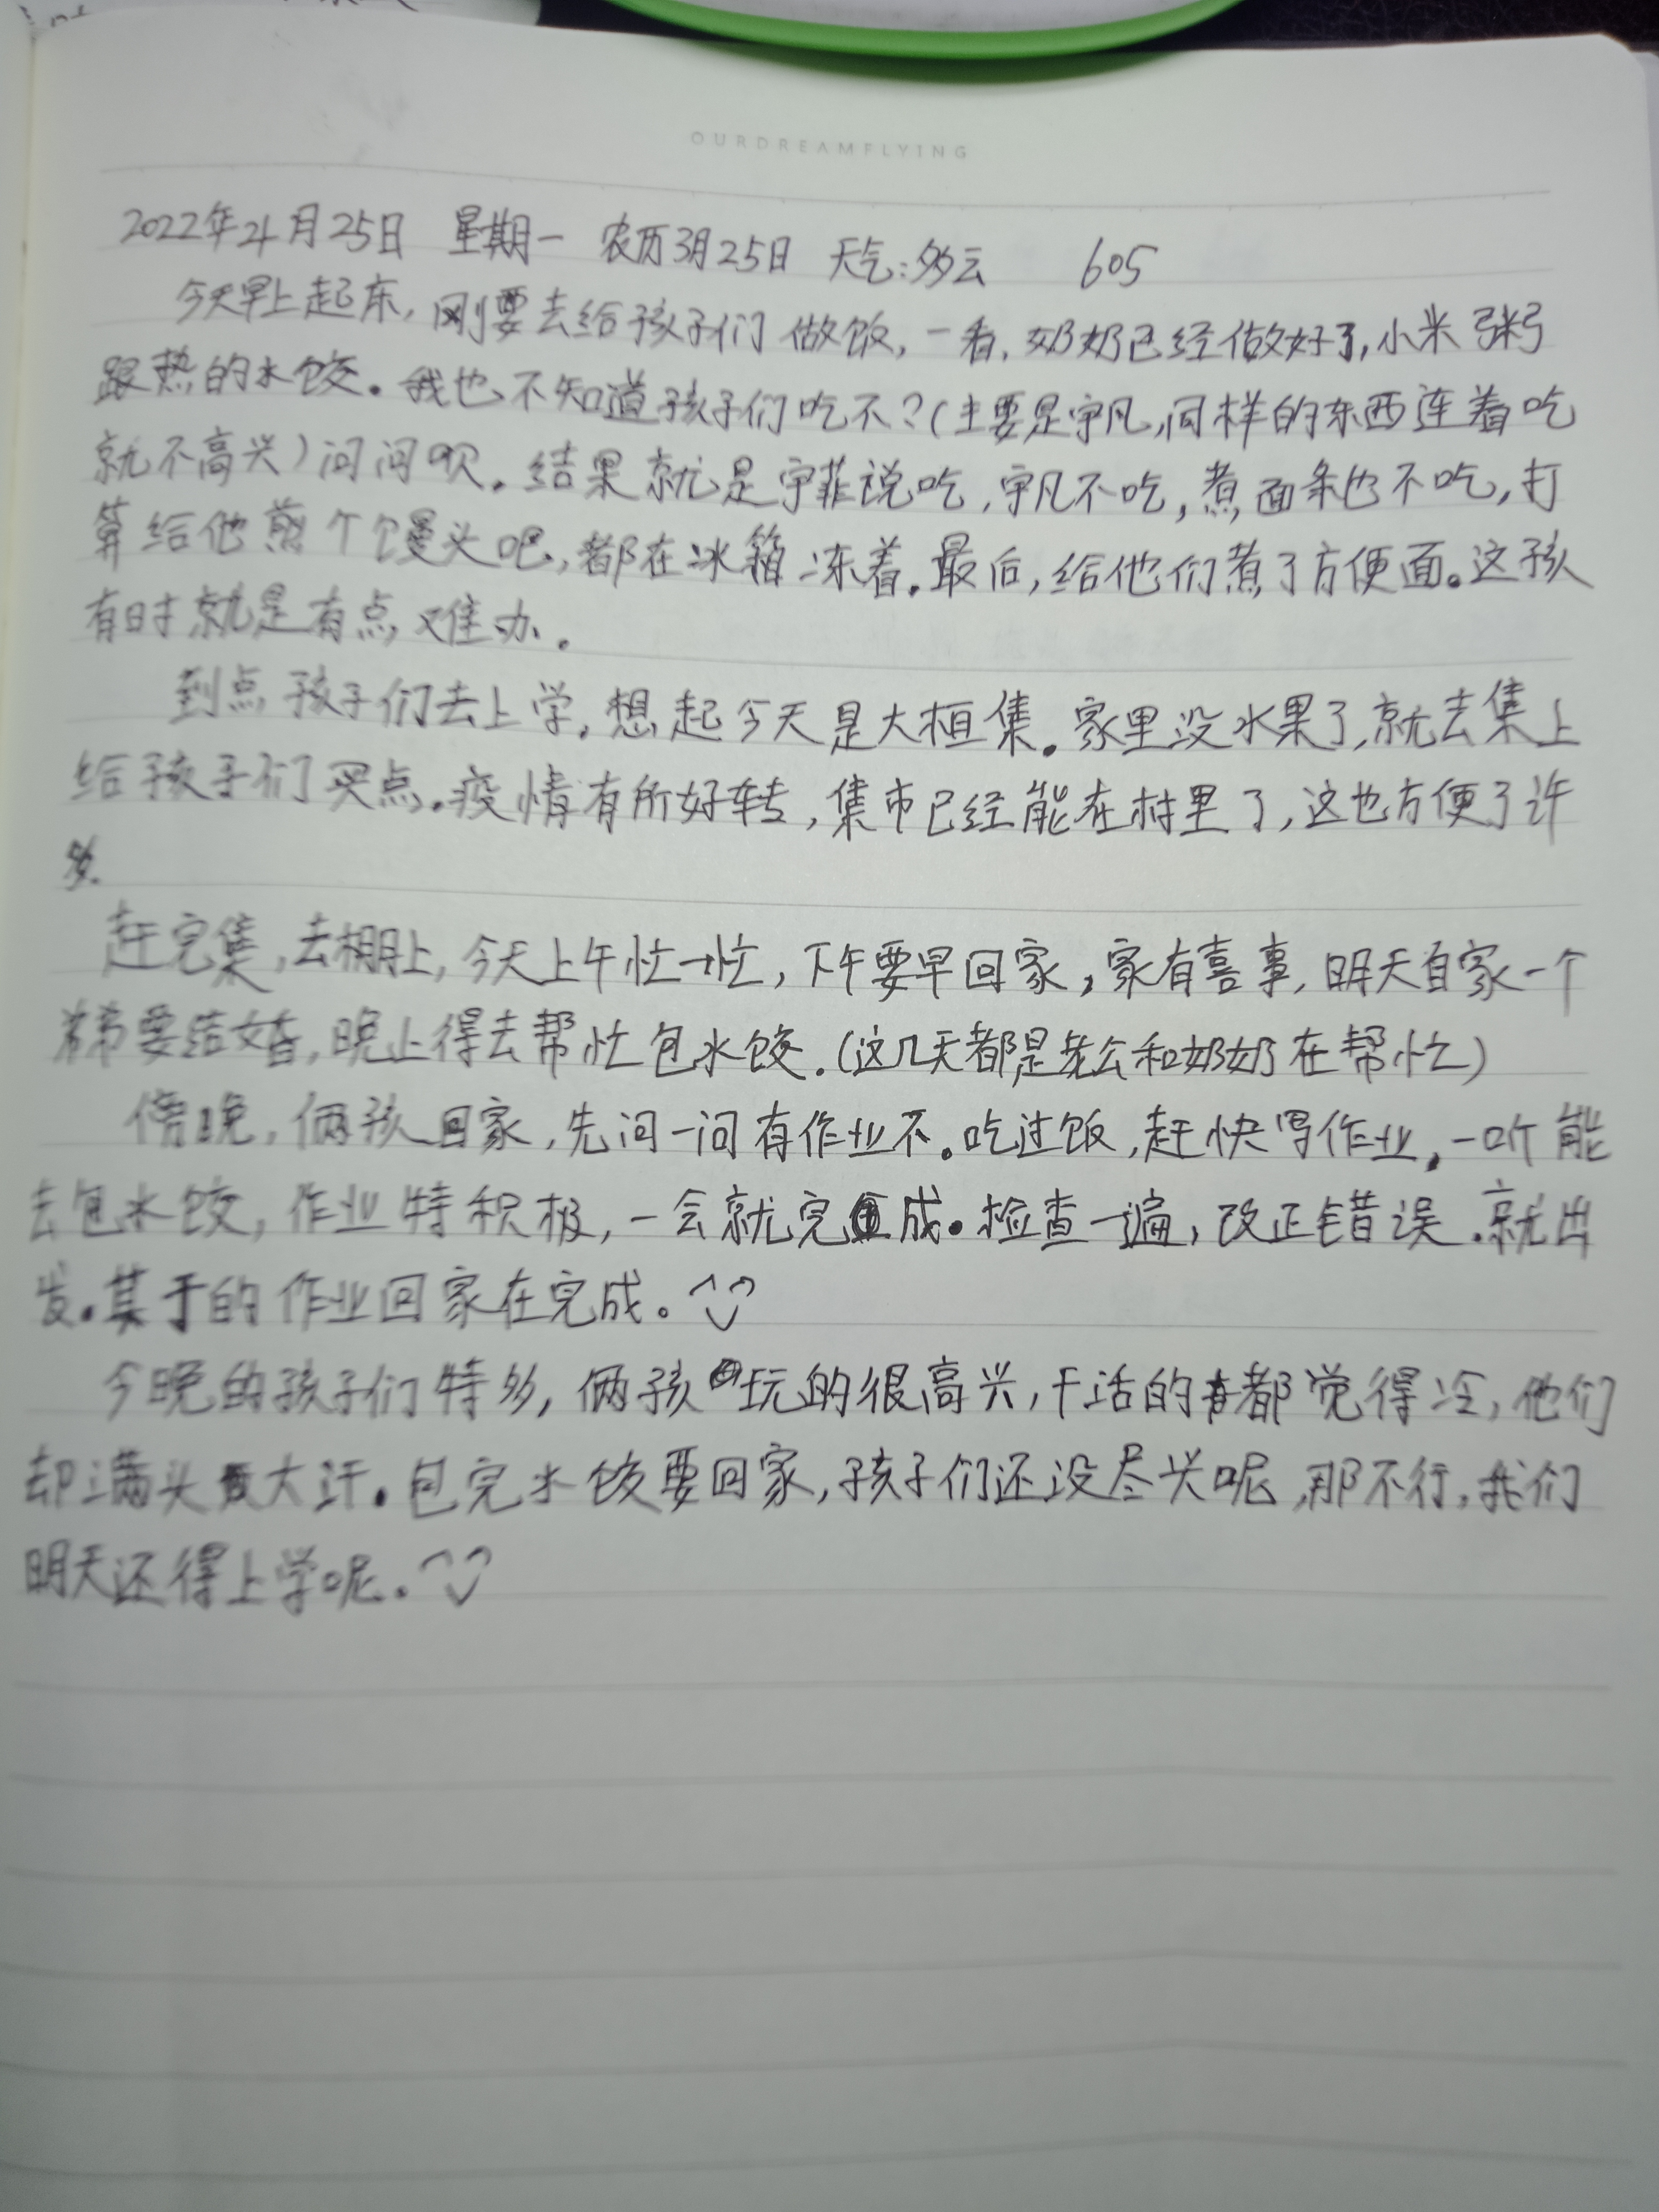 OURDREAMFLYING
2022年4月25日 星期一 农历3月25日 天气:多云 605
今天早上起床,刚要去给孩子们做饭,一看,奶奶已经做好了,小米粥
跟热的水饺。我也不知道孩子们吃不?(主要是宇凡,同样的东西连着吃
就不高兴)问问呗。结果就是宇菲说吃,宇凡不吃,煮面条也不吃,打
算给他煎个馒头吧,都在冰箱冻着。最后,给他们煮了方便面。这孩
有时就是有点难办。
到点孩子们去上学,想起今天是大桓集。家里没水果了,就去集上
给孩子们买点。疫情有所好转,集市已经能在村里了,这也方便了许
多。
赶完集,去棚上,今天上午忙一忙,下午要早回家,家有喜事,明天自家一个
弟弟要结婚,晚上得去帮忙包水饺.(这几天都是老公和奶奶在帮忙)
傍晚,俩孩回家,先问一问有作业不。吃过饭,赶快写作业,一听能
去包水饺,作业特积极,一会就完成。检查一遍,改正错误.就出
发。其于的作业回家在完成。
今晚的孩子们特多,俩孩玩的很高兴,干活的都觉得冷,他们
却满头大汗。包完水饺要回家,孩子们还没尽兴呢,那不行,我们
明天还得上学呢。